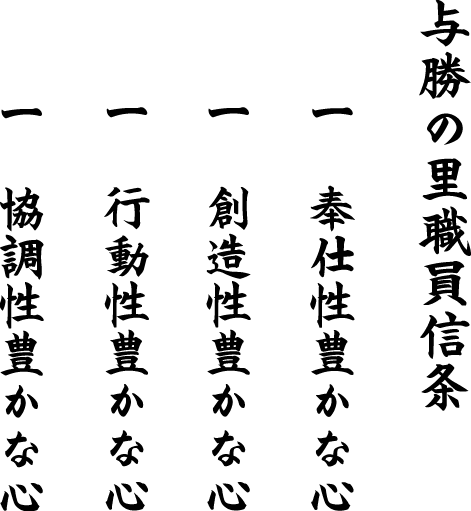 与勝の里職員信条
一 奉仕性豊かな心
一 創造性豊かな心
一 行動性豊かな心
一 協調性豊かな心